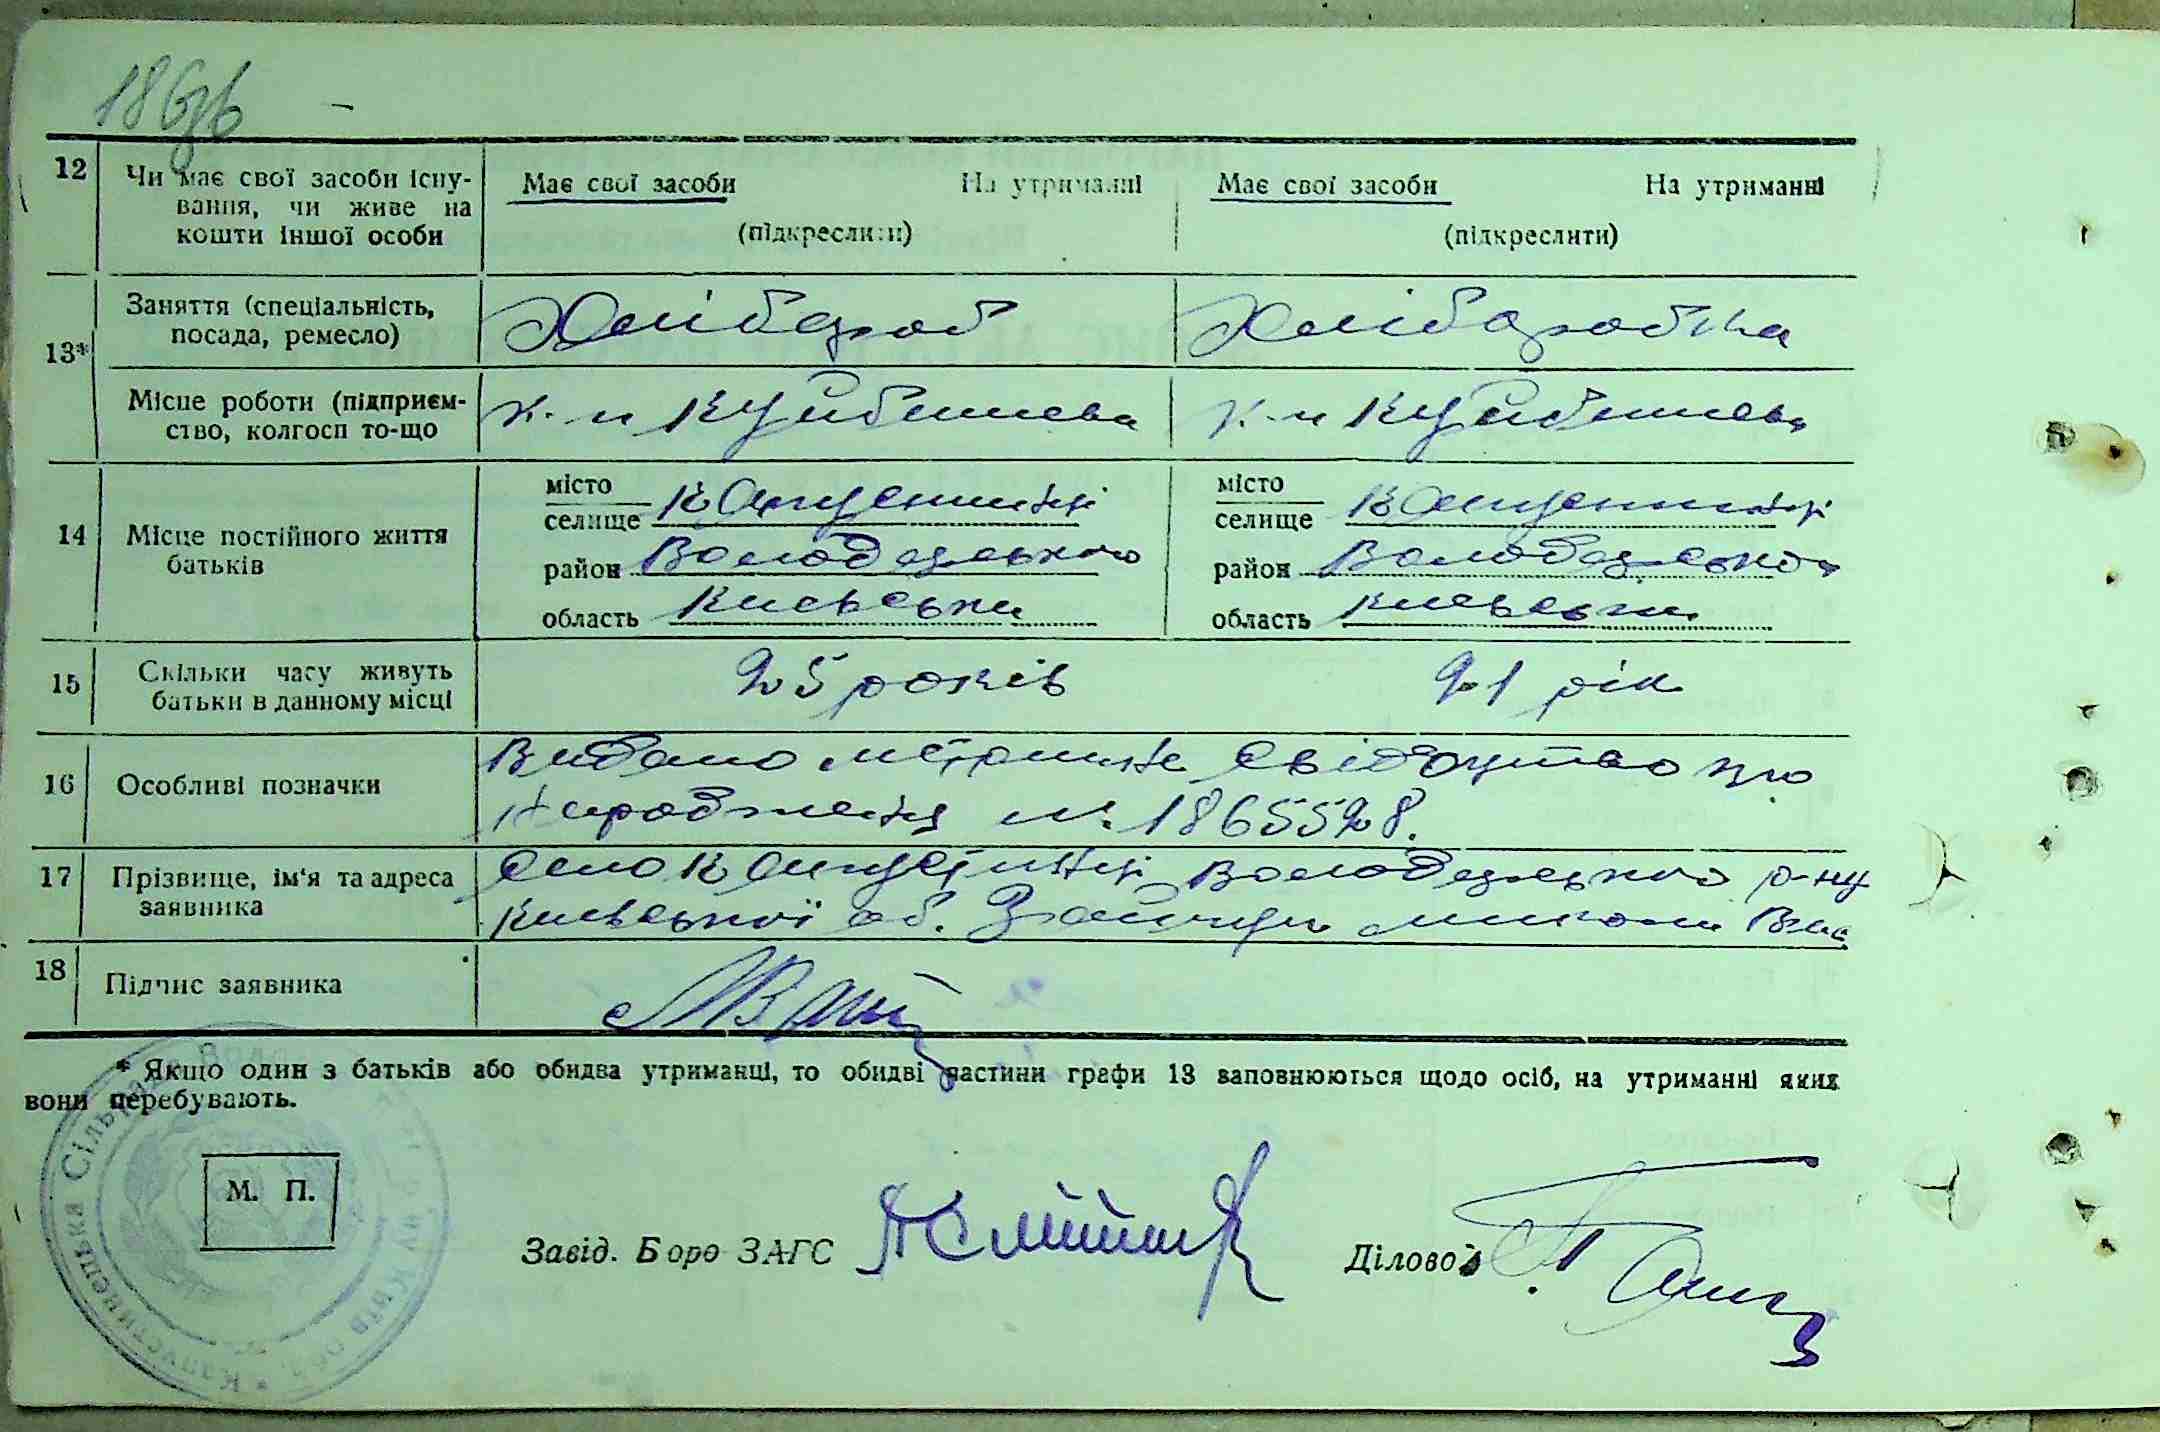 186зв
12 Чи має свої засоби існу- Має свої засоби На утриманні Має свої засоби На утриманні
вання, чи живе на
кошти іншої особи (підкреслити) (підкреслити)
13* Заняття (спеціальність, Хлібороб Хліборобка
посада, ремесло)
Місце роботи (підприєм- к-п Куйбишева к-п Куйбишева
ство, колгосп то-що
14 Місце постійного життя батьків
місто місто
селище Капустинці селище Капустинці
район Володарського район Володарського
область Київська область Київська
15 Скільки часу живуть 25 років 21 рік
батьки в данному місці
16 Особливі позначки Видано метричне свідоцтво про
народження №. 1865528.
17 Прізвище, ім'я та адреса село Капустинці Володарського р-ну
заявника Київської об. Микола
18 Підпис заявника
* Якщо один з батьків або обидва утриманці, то обидві частини графи 13 заповнюються щодо осіб, на утриманні яких
вони перебувають.
Капустинська Сільрада Київ обл.
М. П.
Завід. Бюро ЗАГС Діловод